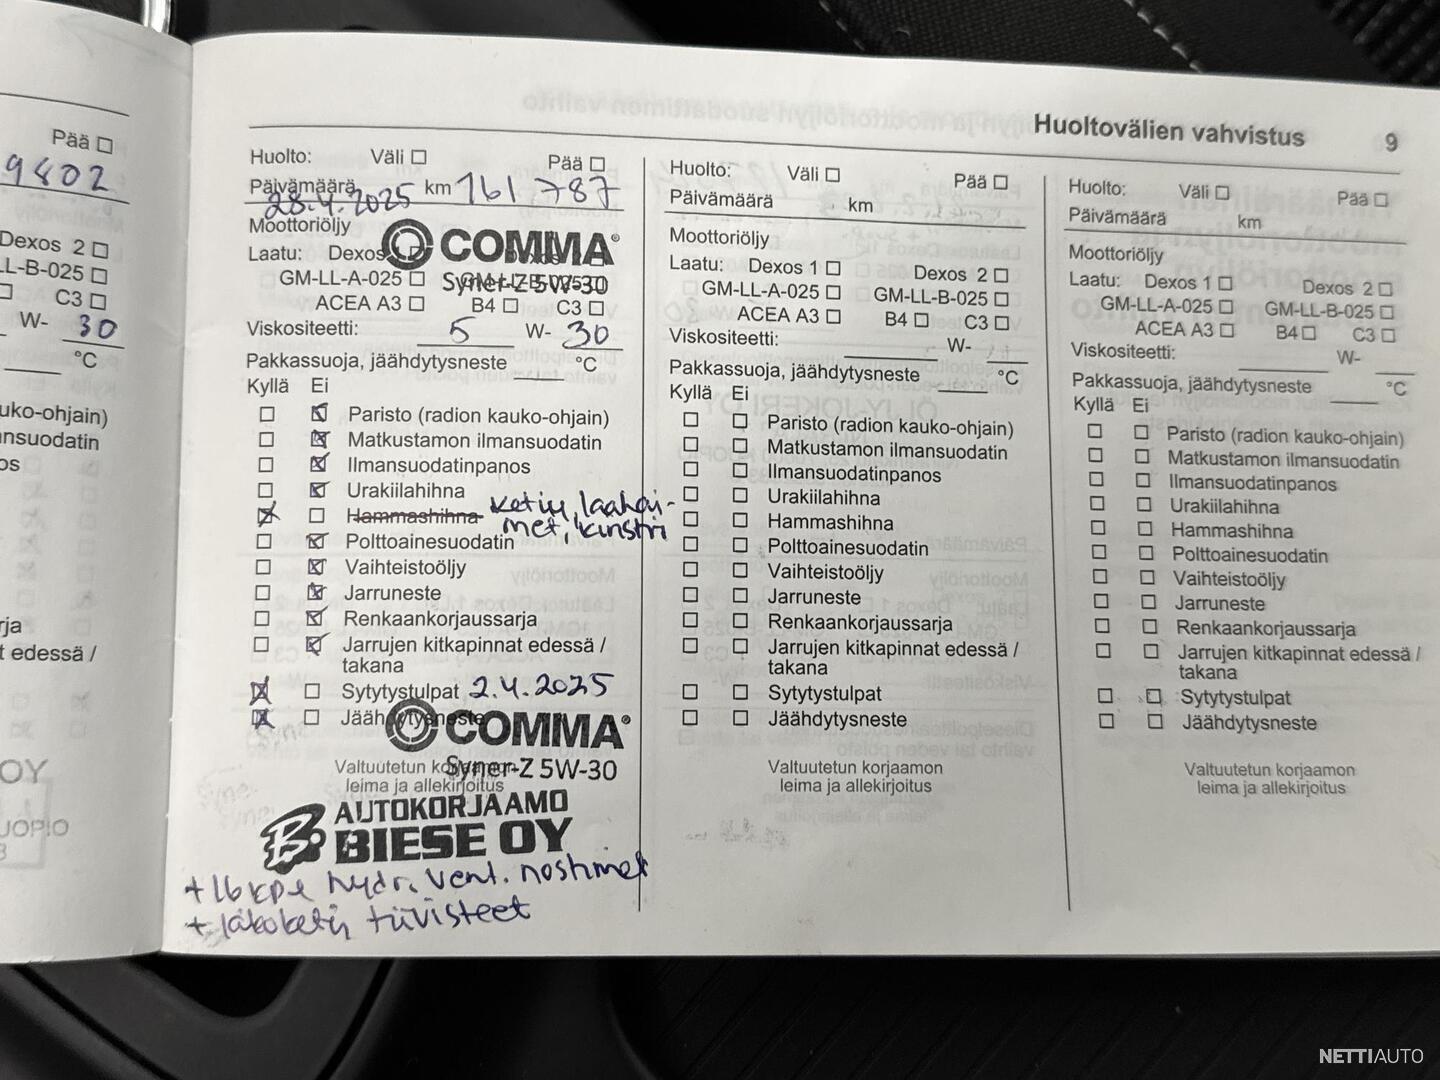 Huoltovälien vahvistus 9
Pää
9802
Dexos 2
LL-B-025
C3
W- 30
°C
uko-ohjain)
nsuodatin
os
rja
t edessä /
OY
UOPIO
Huolto: Väli Pää
Päivämäärä 28.4.2025 km 161 787
Moottoriöljy
COMMA®
Laatu: Dexos
GM-LL-A-025
Syner-Z 5W-30
ACEA A3 B4 C3
Viskositeetti: 5 W- 30
Pakkassuoja, jäähdytysneste °C
Kyllä Ei
Paristo (radion kauko-ohjain)
Matkustamon ilmansuodatin
Ilmansuodatinpanos
Urakiilahihna
Hammashihna ketju, laahai-
met, kiristin
Polttoainesuodatin
Vaihteistoöljy
Jarruneste
Renkaankorjaussarja
Jarrujen kitkapinnat edessä /
takana
Sytytystulpat 2.4.2025
Jäähdytysneste
COMMA®
Syner-Z 5W-30
Valtuutetun korjaamon
leima ja allekirjoitus
AUTOKORJAAMO
BIESE OY
+ 16 kpl hydr. vent. nostimet
+ jakoketj. tiivisteet
Huolto: Väli Pää
Päivämäärä km
Moottoriöljy
Laatu: Dexos 1 Dexos 2
GM-LL-A-025 GM-LL-B-025
ACEA A3 B4 C3
Viskositeetti: W-
Pakkassuoja, jäähdytysneste °C
Kyllä Ei
Paristo (radion kauko-ohjain)
Matkustamon ilmansuodatin
Ilmansuodatinpanos
Urakiilahihna
Hammashihna
Polttoainesuodatin
Vaihteistoöljy
Jarruneste
Renkaankorjaussarja
Jarrujen kitkapinnat edessä /
takana
Sytytystulpat
Jäähdytysneste
Valtuutetun korjaamon
leima ja allekirjoitus
Huolto: Väli Pää
Päivämäärä km
Moottoriöljy
Laatu: Dexos 1 Dexos 2
GM-LL-A-025 GM-LL-B-025
ACEA A3 B4 C3
Viskositeetti: W-
Pakkassuoja, jäähdytysneste °C
Kyllä Ei
Paristo (radion kauko-ohjain)
Matkustamon ilmansuodatin
Ilmansuodatinpanos
Urakiilahihna
Hammashihna
Polttoainesuodatin
Vaihteistoöljy
Jarruneste
Renkaankorjaussarja
Jarrujen kitkapinnat edessä /
takana
Sytytystulpat
Jäähdytysneste
Valtuutetun korjaamon
leima ja allekirjoitus
NETTIAUTO